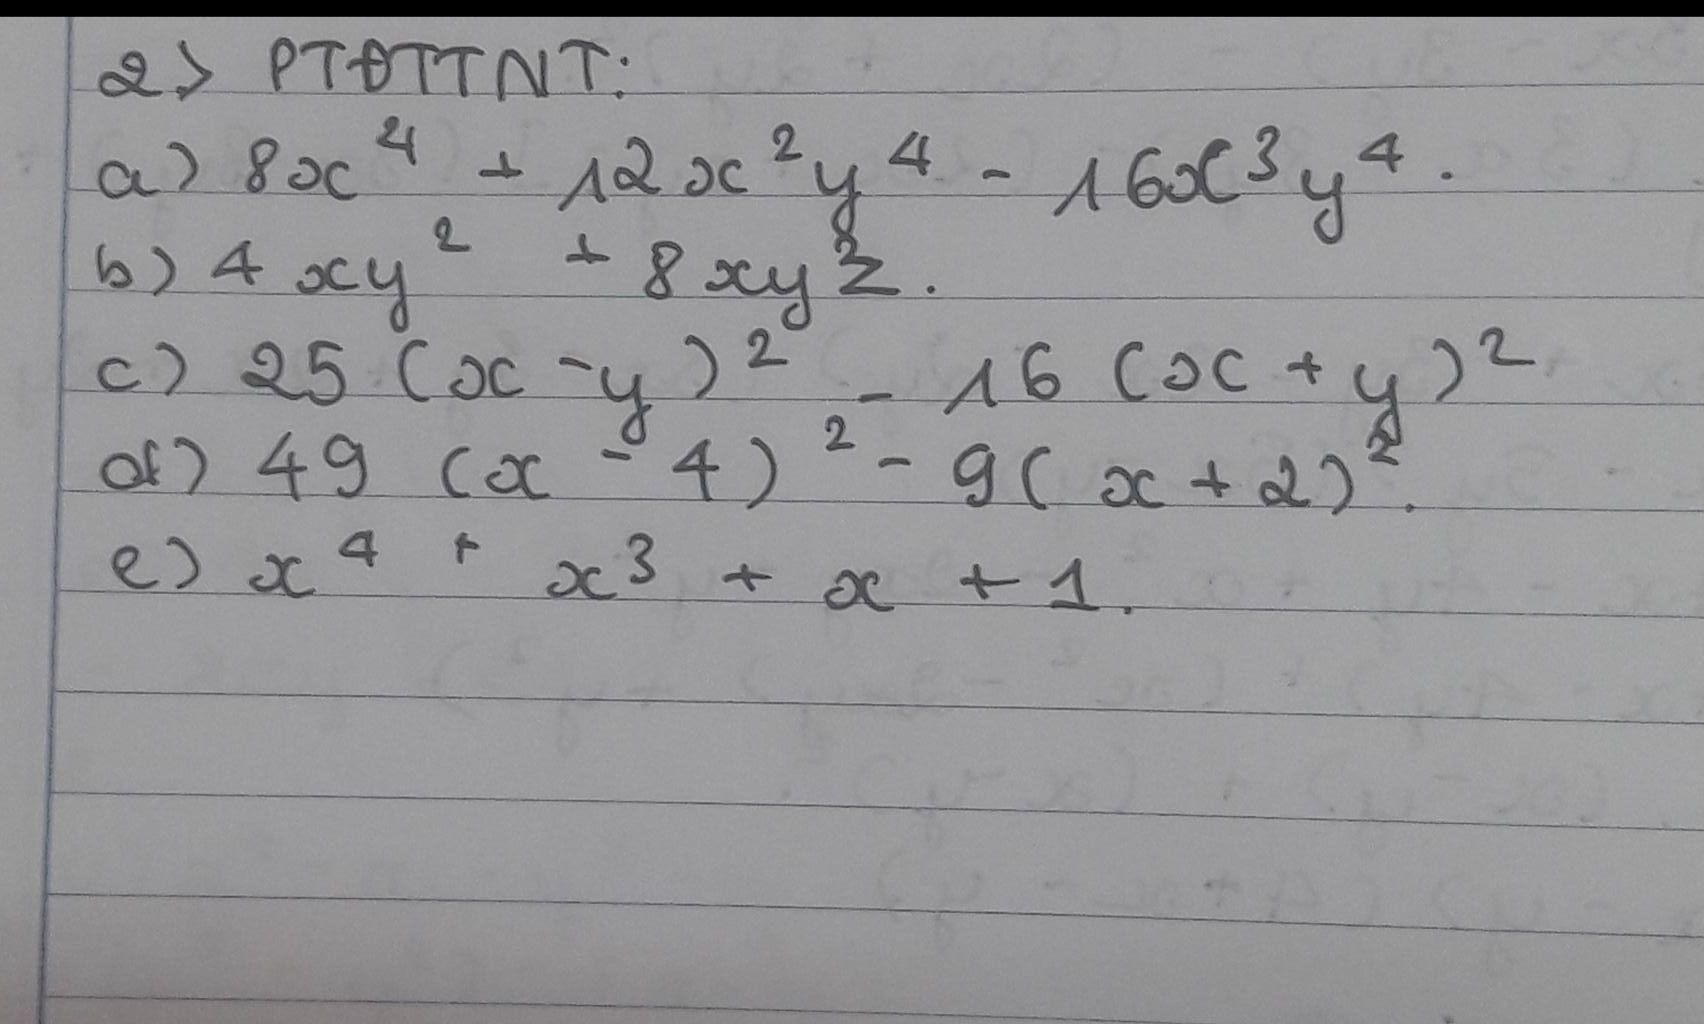 2> PTĐTTNT:
a) 8x⁴ + 12x²y⁴ - 16x³y⁴.
b) 4xy² + 8xyz.
c) 25(x - y)² - 16(x + y)²
d) 49(x - 4)² - 9(x + 2)².
e) x⁴ + x³ + x + 1.